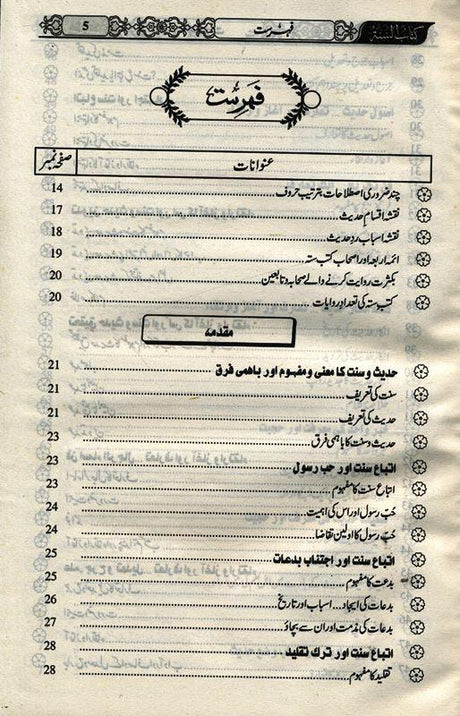 کتاب السنۃ فہرست 5
فہرست
عنوانات صفحہ نمبر
چند ضروری اصطلاحات بترتیب حروف 14
نقشہ اقسام حدیث 17
نقشہ اسباب ردِ حدیث 18
ائمہ اربعہ اور اصحاب کتب ستہ 19
بکثرت روایت کرنے والے صحابہ و تابعین 20
کتب ستہ کی تعداد روایات 20
مقدمہ
حدیث و سنت کا معنی و مفہوم اور باھمی فرق 21
سنت کی تعریف 21
حدیث کی تعریف 21
حدیث و سنت کا باہمی فرق 23
اتباع سنت اور حب رسول 23
اتباع سنت کا مفہوم 23
حُبّ رسول اور اس کی اہمیت 24
حُبّ رسول کا اولین تقاضا 24
اتباع سنت اور اجتناب بدعات 25
بدعت کا مفہوم 25
بدعات کی ایجاد... اسباب اور تاریخ 26
بدعات کی مذمت اور ان سے بچاؤ 27
اتباع سنت اور ترک تقلید 28
تقلید کا مفہوم 28